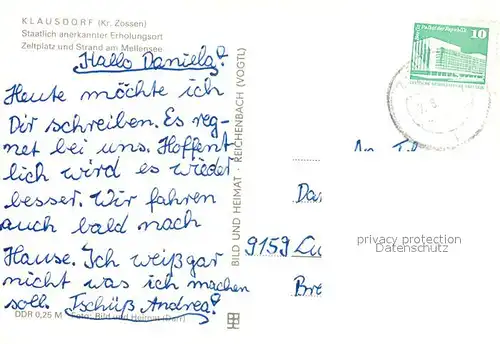 KLAUSDORF (Kr. Zossen)
Staatlich anerkannter Erholungsort
Zeltplatz und Strand am Mellensee
Hallo Daniela!
Heute möchte ich
Dir schreiben. Es reg-
net bei uns. Hoffent
lich wird es wieder
besser. Wir fahren
auch bald nach
Hause. Ich weiß gar
nicht was ich machen
soll. Tschüß Andrea!
DDR 0,25 M Foto: Bild und Heimat (Darr)
BILD UND HEIMAT · REICHENBACH (VOGTL)
Berlin Palast der Republik
10
An
Da
9159 Lu
Bre
privacy protection
Datenschutz